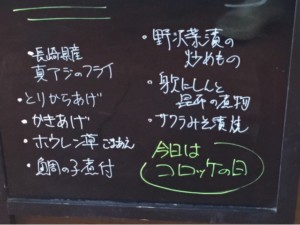 ・長崎県産
真アジのフライ
・とりからあげ
・かきあげ
・ホウレン草ごまあえ
・鯛の子煮付
・野沢菜漬の
炒めもの
・身欠にしんと
昆布の煮物
・サワラみそ漬焼
今日は
コロッケの日